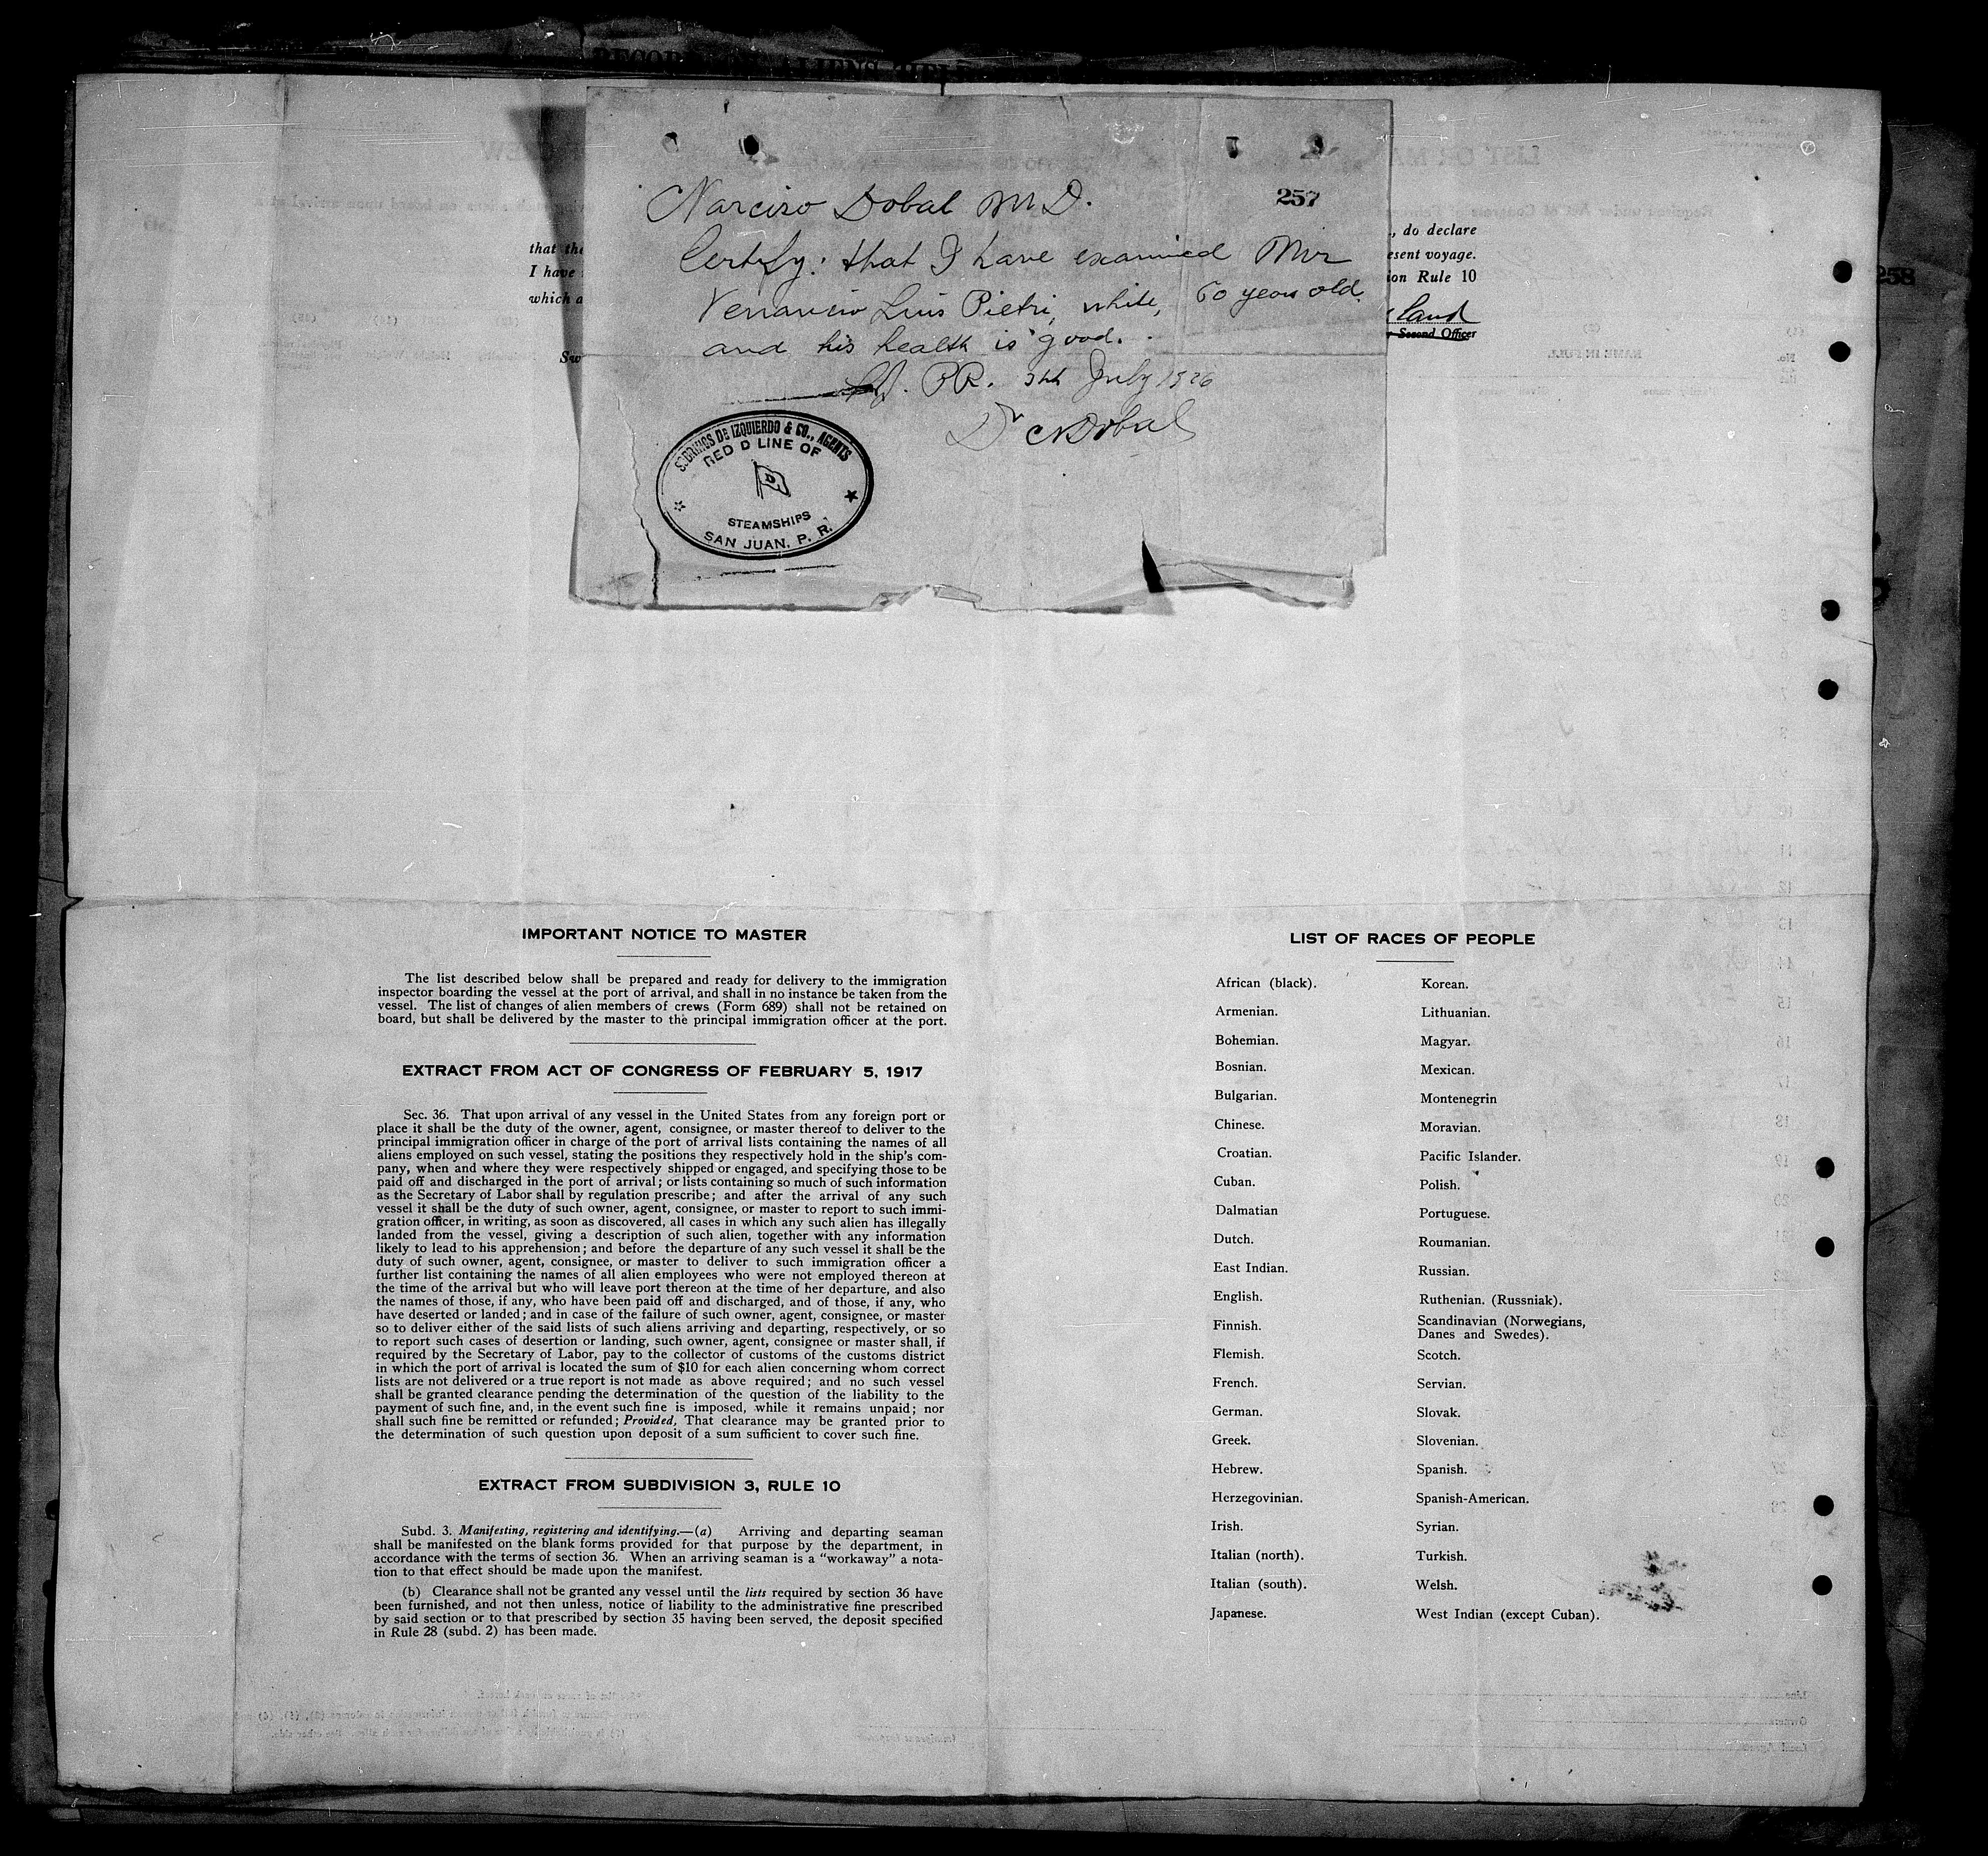 257
Narciso Dobal M.D.
Certify: that I have examined Mir
Venancio Luis Pietri, white, 60 years old
and his health is good.
P.R. 5th July 1926
Dr N Dobal
SOBRINOS DE IZQUIERDO & CO., AGENTS
RED D LINE OF
D
STEAMSHIPS
SAN JUAN, P. R.
that the
I have
which a
Sw
, do declare
esent voyage.
ion Rule 10
land
Second Officer
258
IMPORTANT NOTICE TO MASTER
The list described below shall be prepared and ready for delivery to the immigration
inspector boarding the vessel at the port of arrival, and shall in no instance be taken from the
vessel. The list of changes of alien members of crews (Form 689) shall not be retained on
board, but shall be delivered by the master to the principal immigration officer at the port.
EXTRACT FROM ACT OF CONGRESS OF FEBRUARY 5, 1917
Sec. 36. That upon arrival of any vessel in the United States from any foreign port or
place it shall be the duty of the owner, agent, consignee, or master thereof to deliver to the
principal immigration officer in charge of the port of arrival lists containing the names of all
aliens employed on such vessel, stating the positions they respectively hold in the ship's com-
pany, when and where they were respectively shipped or engaged, and specifying those to be
paid off and discharged in the port of arrival; or lists containing so much of such information
as the Secretary of Labor shall by regulation prescribe; and after the arrival of any such
vessel it shall be the duty of such owner, agent, consignee, or master to report to such immi-
gration officer, in writing, as soon as discovered, all cases in which any such alien has illegally
landed from the vessel, giving a description of such alien, together with any information
likely to lead to his apprehension; and before the departure of any such vessel it shall be the
duty of such owner, agent, consignee, or master to deliver to such immigration officer a
further list containing the names of all alien employees who were not employed thereon at
the time of the arrival but who will leave port thereon at the time of her departure, and also
the names of those, if any, who have been paid off and discharged, and of those, if any, who
have deserted or landed; and in case of the failure of such owner, agent, consignee, or master
so to deliver either of the said lists of such aliens arriving and departing, respectively, or so
to report such cases of desertion or landing, such owner, agent, consignee or master shall, if
required by the Secretary of Labor, pay to the collector of customs of the customs district
in which the port of arrival is located the sum of $10 for each alien concerning whom correct
lists are not delivered or a true report is not made as above required; and no such vessel
shall be granted clearance pending the determination of the question of the liability to the
payment of such fine, and, in the event such fine is imposed, while it remains unpaid; nor
shall such fine be remitted or refunded; Provided, That clearance may be granted prior to
the determination of such question upon deposit of a sum sufficient to cover such fine.
EXTRACT FROM SUBDIVISION 3, RULE 10
Subd. 3. Manifesting, registering and identifying.—(a) Arriving and departing seaman
shall be manifested on the blank forms provided for that purpose by the department, in
accordance with the terms of section 36. When an arriving seaman is a "workaway" a nota-
tion to that effect should be made upon the manifest.
(b) Clearance shall not be granted any vessel until the lists required by section 36 have
been furnished, and not then unless, notice of liability to the administrative fine prescribed
by said section or to that prescribed by section 35 having been served, the deposit specified
in Rule 28 (subd. 2) has been made.
LIST OF RACES OF PEOPLE
African (black).
Armenian.
Bohemian.
Bosnian.
Bulgarian.
Chinese.
Croatian.
Cuban.
Dalmatian
Dutch.
East Indian.
English.
Finnish.
Flemish.
French.
German.
Greek.
Hebrew.
Herzegovinian.
Irish.
Italian (north).
Italian (south).
Japanese.
Korean.
Lithuanian.
Magyar.
Mexican.
Montenegrin
Moravian.
Pacific Islander.
Polish.
Portuguese.
Roumanian.
Russian.
Ruthenian. (Russniak).
Scandinavian (Norwegians,
Danes and Swedes).
Scotch.
Servian.
Slovak.
Slovenian.
Spanish.
Spanish-American.
Syrian.
Turkish.
Welsh.
West Indian (except Cuban).